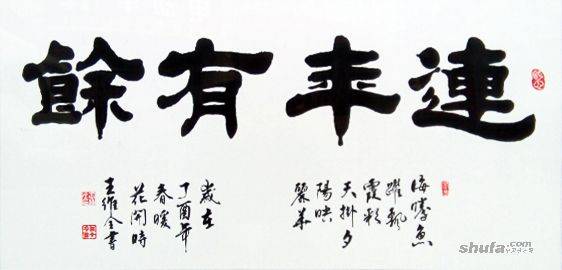 連年有餘
魚
躍
霞彩
天掛夕
陽映
歲在
丁酉年
春暖
花開時
王維全書
shufa.com